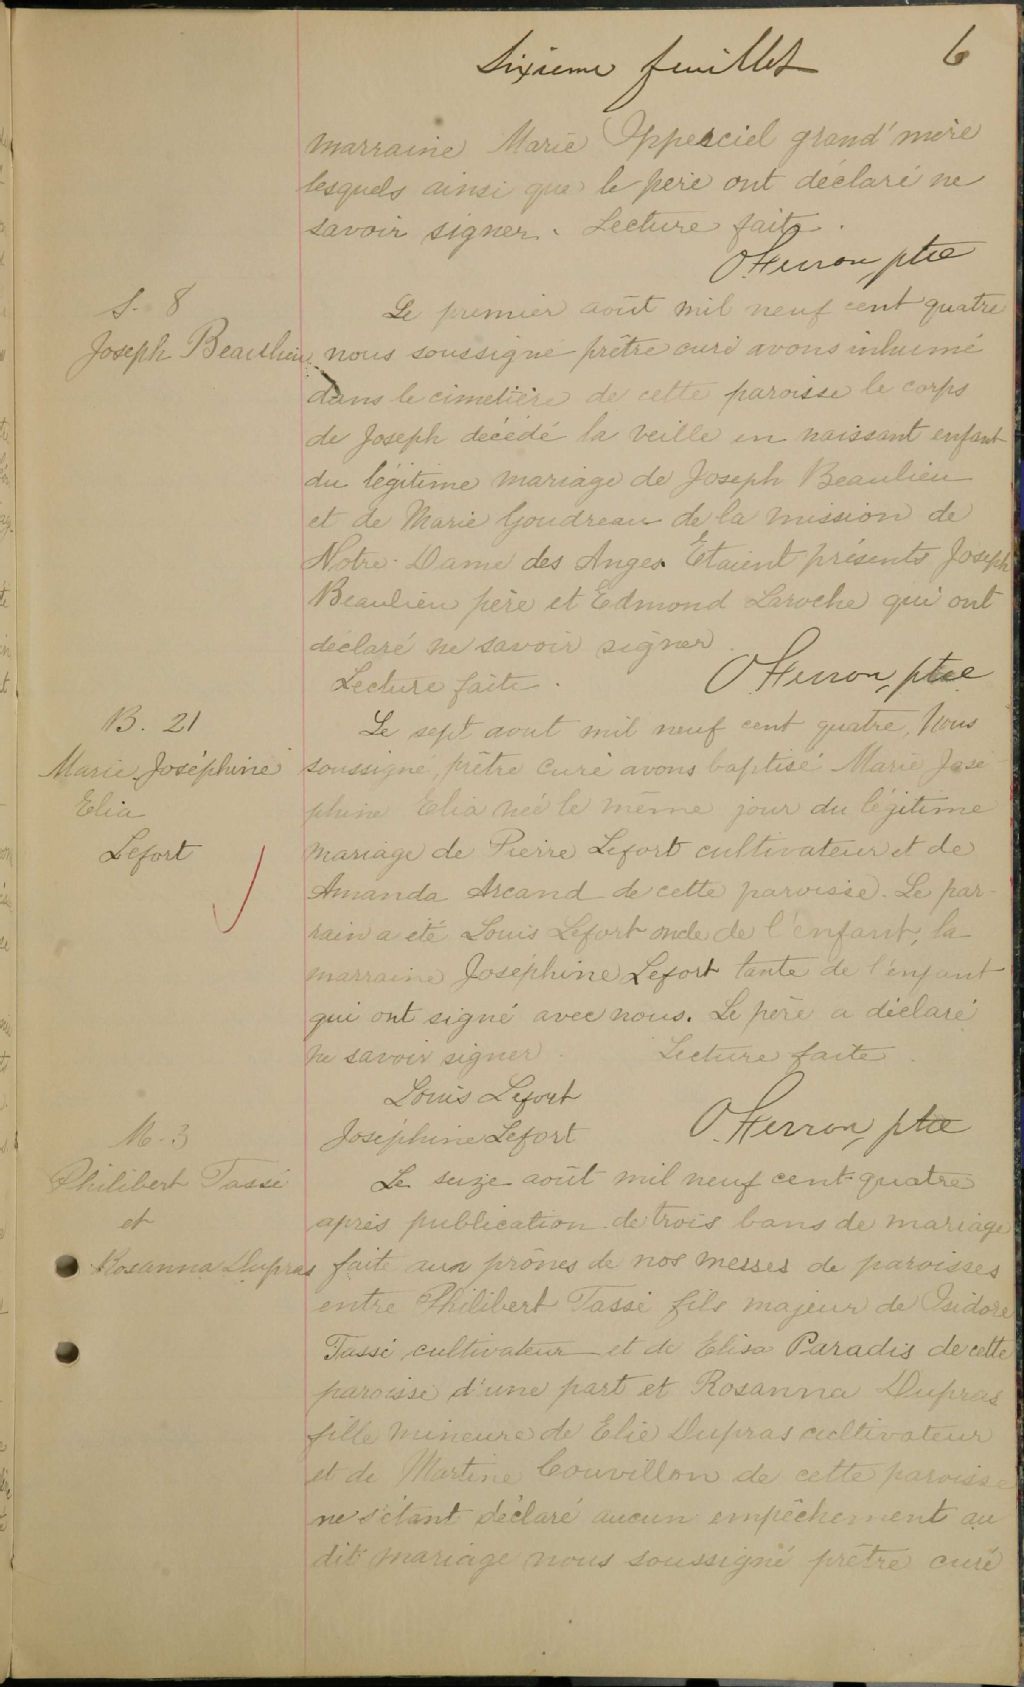 Sixieme feuillet 6
marraine Marie Ippersiel grand'mère
lesquels ainsi que le père ont déclaré ne
savoir signer. Lecture faite.
O Herron ptre
S. 8
Joseph Beaulieu
Le premier août mil neuf cent quatre
nous soussigné prêtre curé avons inhumé
dans le cimetière de cette paroisse le corps
de Joseph décédé la veille en naissant enfant
du légitime mariage de Joseph Beaulieu
et de Marie Goudreau de la mission de
Notre-Dame des Anges. Etaient présents Joseph
Beaulieu père et Edmond Laroche qui ont
déclaré ne savoir signer.
Lecture faite. O Herron, ptre
B. 21
Marie Joséphine
Elia
Lefort
Le sept aout mil neuf cent quatre, Nous
soussigné, prêtre curé avons baptisé Marie José-
phine Elia née le même jour du légitime
mariage de Pierre Lefort cultivateur et de
Amanda Arcand de cette paroisse. Le par-
rain a été Louis Lefort oncle de l'enfant, la
marraine Joséphine Lefort tante de l'enfant
qui ont signé avec nous. Le père a déclaré
ne savoir signer. Lecture faite.
Louis Lefort
Joséphine Lefort O. Herron, ptre
M. 3
Philibert Tassé
et
Rosanna Dupras
Le seize août mil neuf cent quatre
après publication de trois bans de mariage
faite aux prônes de nos messes de paroisses
entre Philibert Tassé fils majeur de Isidore
Tassé cultivateur et de Elisa Paradis de cette
paroisse d'une part et Rosanna Dupras
fille mineure de Elie Dupras cultivateur
et de Martine Couvillon de cette paroisse
ne s'étant déclaré aucun empêchement au
dit mariage nous soussigné prêtre curé